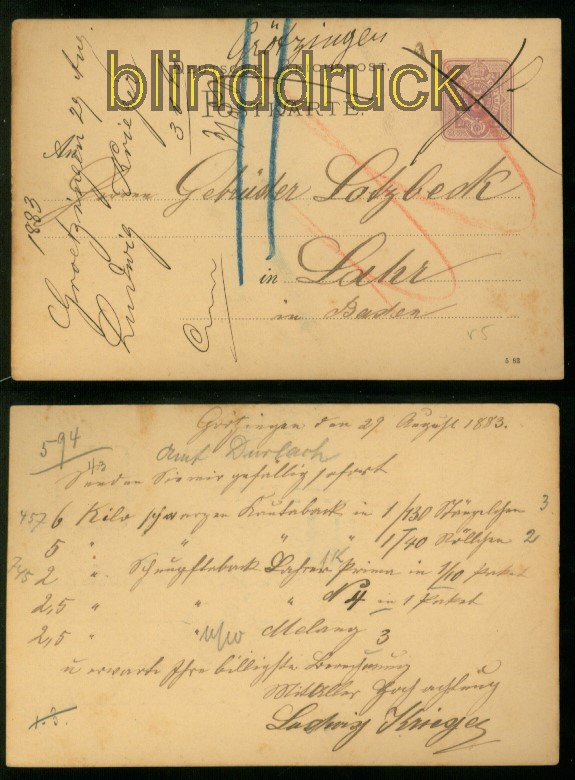 Grötzingen
blinddruck
POSTKARTE.
An
Herrn Gebrüder Lotzbeck
in Lahr
in Baden
1883
Groetzingen 29 Aug.
Ludwig Krieger
5 83
Grötzingen den 29. August 1883.
594
Amt Durlach
Senden Sie mir gefälligst sofort
6 Kilo schwarzen Kautaback in 1/130 Stängelchen 3
5 " " " 1/40 Röllchen 2
2 " Schnupftaback Lahrer Prima in 1/10 Paket
2,5 " " " No 4 in 1 Paket
2,5 " Melang 3
u erwarte Ihre billigste Berechnung
Mit aller Hochachtung
Ludwig Krieger